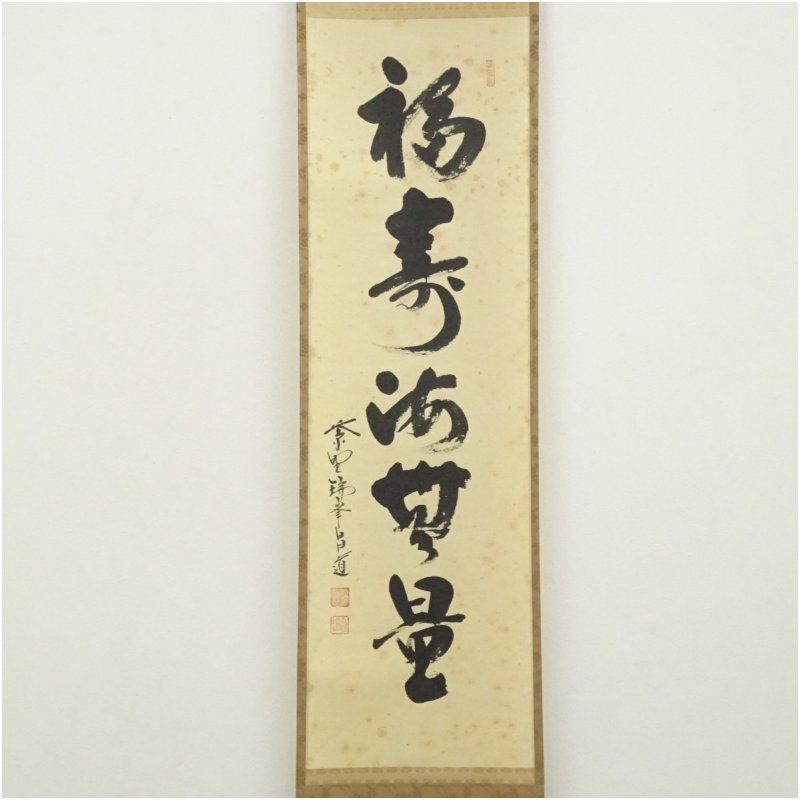 福寿海無量
紫野瑞峯昌道